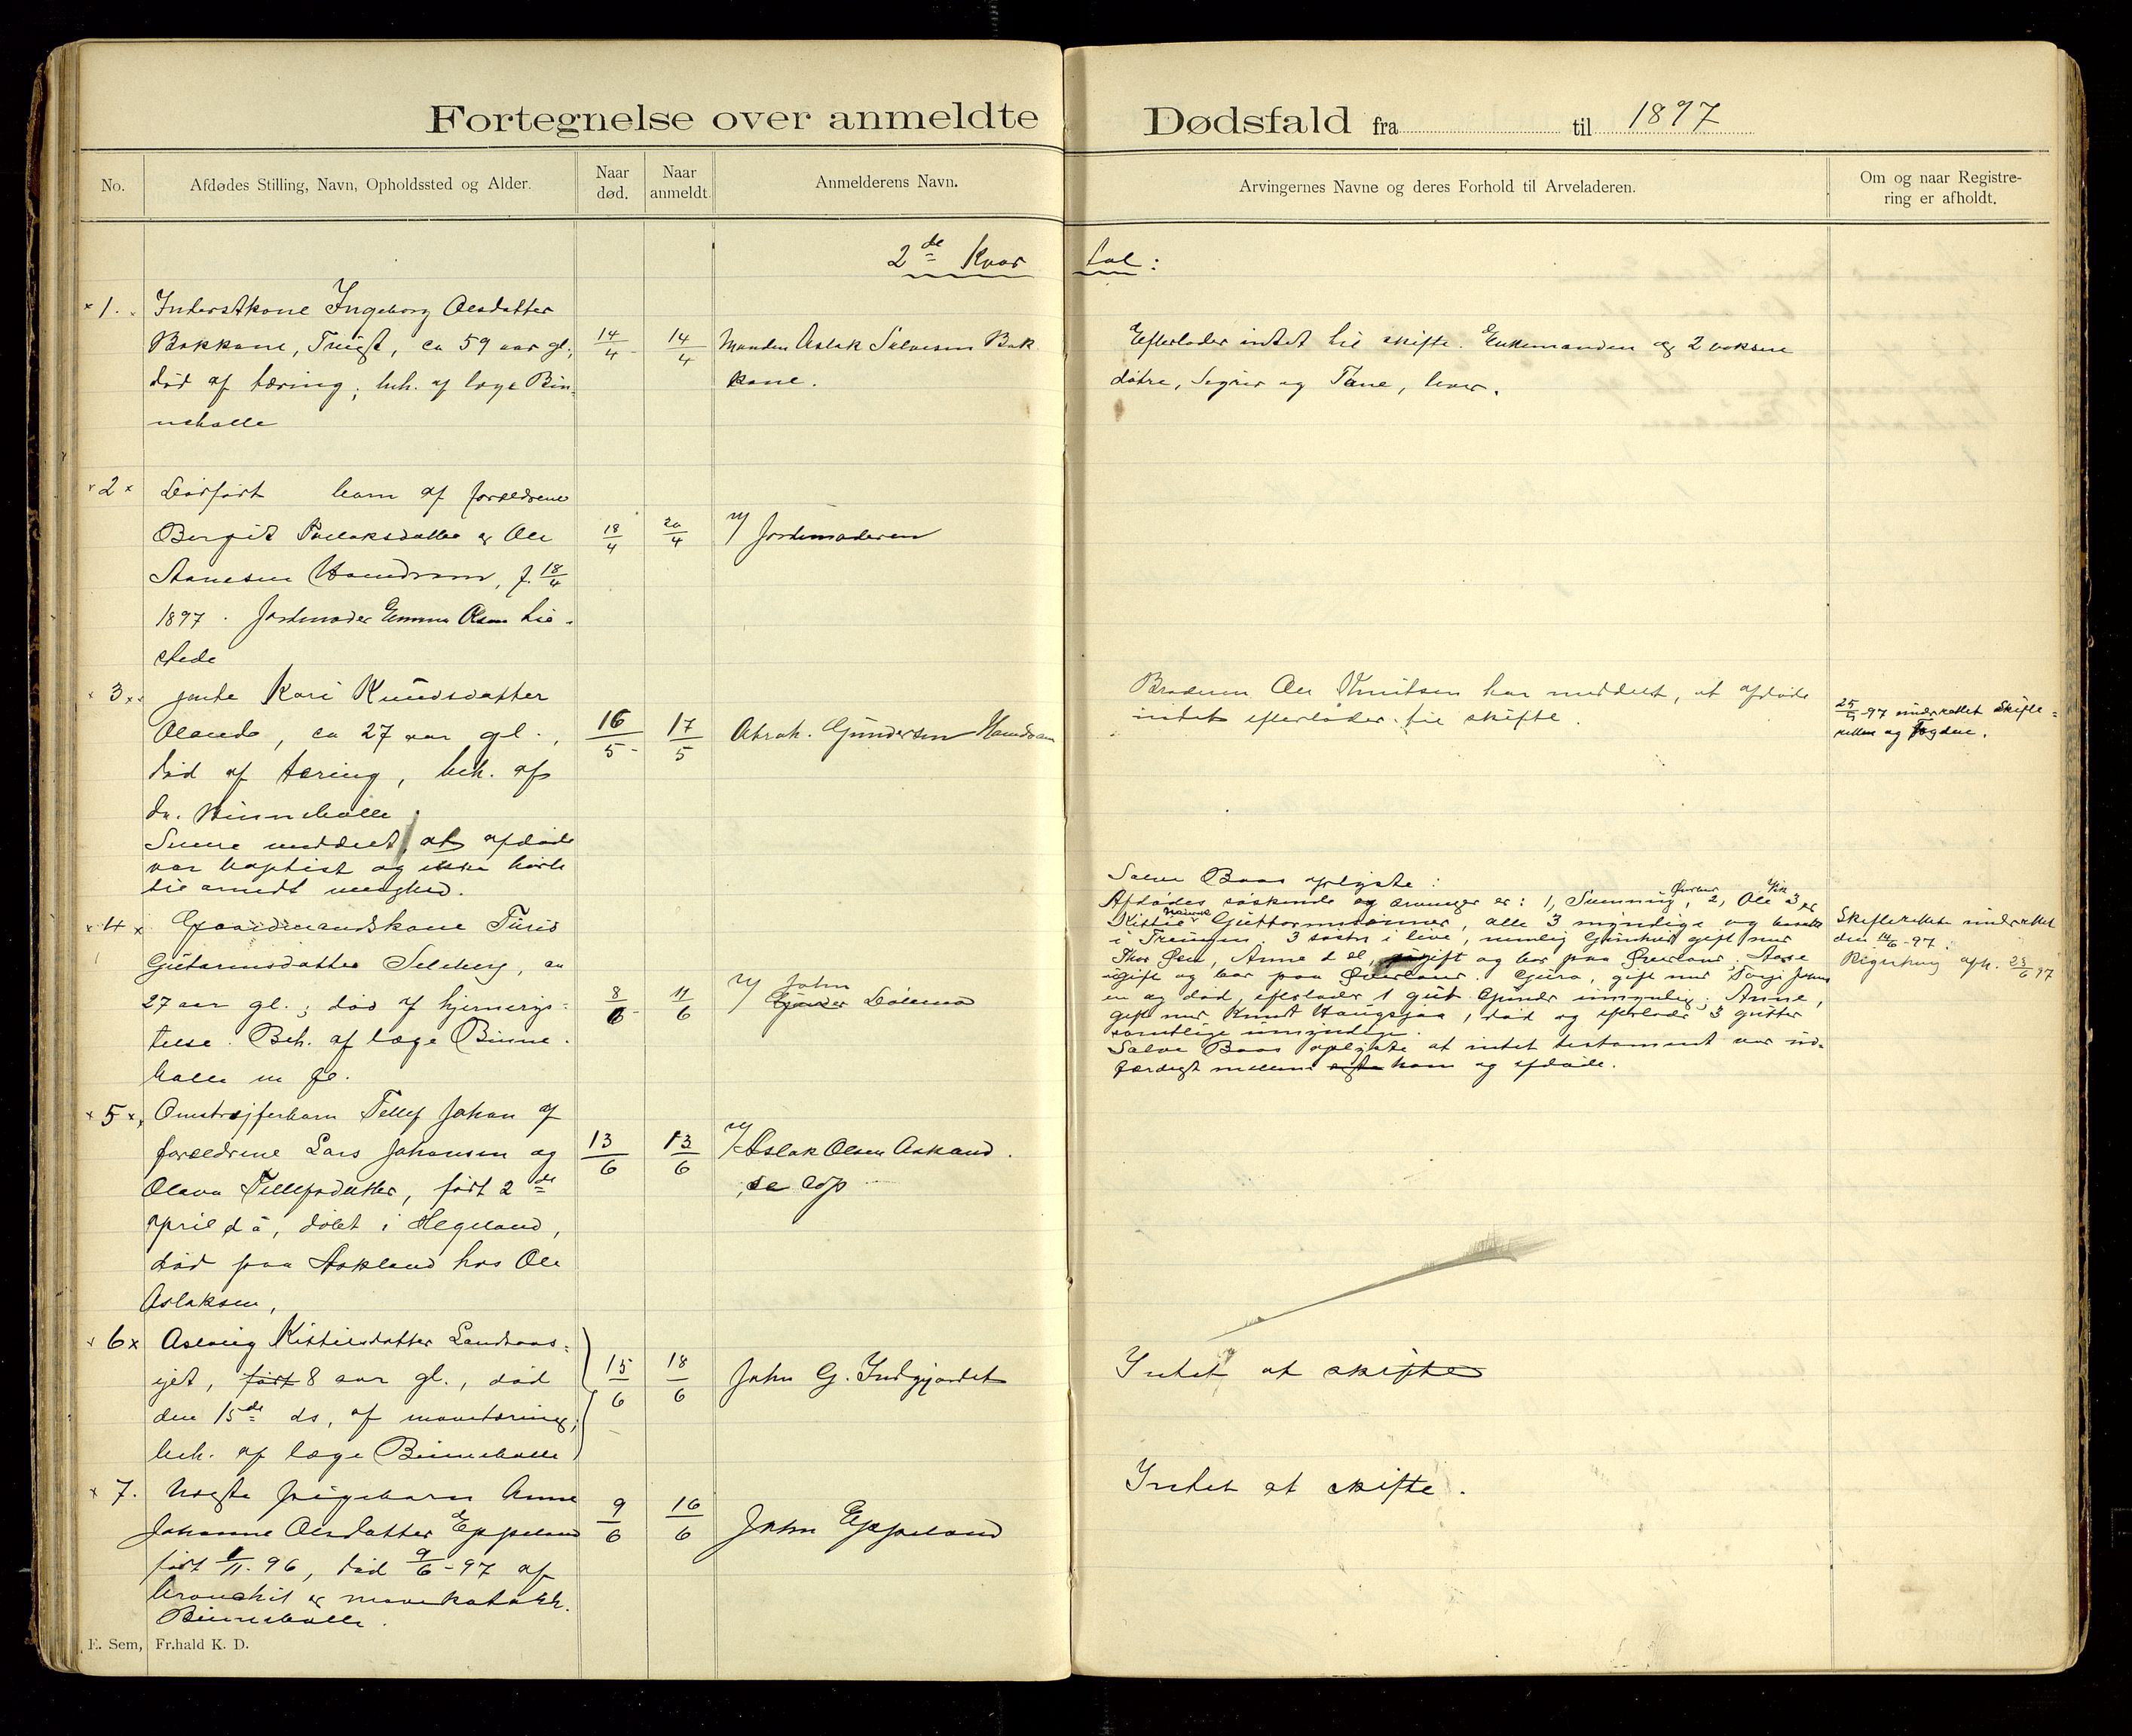 Fortegnelse over anmeldte Dødsfald fra til 1897
No.
Afdødes Stilling, Navn, Opholdssted og Alder.
Naar død.
Naar anmeldt.
Anmelderens Navn.
Arvingernes Navne og deres Forhold til Arveladeren.
Om og naar Registre-
ring er afholdt.
2de Kvar tal:
1. Inderstkone Ingeborg Olsdatter
Bakkane, ca 59 aar gl.,
død af tæring; beh. af læge Bin
nehalle
14/4
14/4
Manden Aslak Salvesen Bak
kane.
Efterlader intet til skifte. Enkemanden og 2 voksne
døtre, Sigrir og Tane, lever.
2 Dødfødt barn af forældrene
Bergit og Ole
Aanesen f. 18/4
1897. Jordmoder Emma Olsen til
stede
18/4
20/4
Jordemoderen
3 jente Kari Knudsdatter
Oland, ca 27 aar gl.,
død af tæring, beh. af
dr. Binnehalle
meddelt, at afdøde
var baptist og ikke hørte
til menghed.
16/5
17/5
Abrah. Gundersen Hamdram
Broderen Ole Knutsen har meddelt, at afdøde
intet efterlader til skifte.
25/5 97 underrettet Skifte-
retten og fogden.
4 Gaardmandskone Turid
Gutormsdatter Selsberg, ca
27 aar gl.; død af hjernerys-
telse. Beh. af læge Binne
halle
8/6
11/6
John
Salve Baas oplyste:
Afdødes søskende og arvinger er: 1, 2, Ole 3 og
Kittil Guttormsønner, alle 3 myndige og bosatte
i Treungen. 3 søstre i live, nemlig Gunhild gift med
Thor Øen, Anne d. æl, ugift og bor paa Øverland, Aase
ugift og bor paa Øverland. Gura, gift med Torje Johns
en og død, efterlader 1 gut Gunder umyndig; Anne,
gift med Knut Haugsjaa, død og efterlader 3 gutter
samtlige umyndige.
Salve Baas oplyste at intet testament var ud-
færdiget mellem ham og afdøde.
Skifteretten underrettet
den 14/6 -97.
Registrering afh. 23/6 97
5 Omstreiferbarn Tellef Johan af
forældrene Lars Johansen og
Olava Tellefsdatter, født 2de
april d å, døbt i Hegeland,
død paa Askland hos Ole
Aslaksen,
13/6
13/6
Aslak Olsen Askland.
6 Aslaug Kittilsdatter Landsaas-
ejet, født 8 aar gl., død
den 15de ds, af mavetæring;
beh. af læge Binnehalle
15/6
18/6
John G. Indgjordet
Intet at skifte
7. Uægte pigebarn Anne
Johanne Olsdatter Eppeland
født /11. 96, død 9/6 -97 af
bronchit og mavekatarh.
Binnehalle.
9/6
16/6
John Eppeland
Intet at skifte.
E. Sem, Fr.hald K. D.